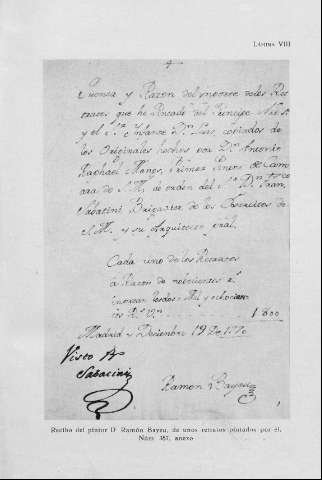 LÁMINA VIII
Cuenta y Razon del importe de los Re
tratos que he Pintado del Principe N.ro S.r
y el S.r Infante D.n Luis, copiados de
los Originales hechos por D.n Antonio
Raphael Mengs, Primer Pintor de Cama
ra de S.M. de orden del S.r D.n Fran.co
Sabatini Brigadier de los Exercitos de
S.M. y su Arquitecto
Cada uno de los Retratos
a Razon de nobecientos
importan los dos Mil y ochocien
tos R.s V.n 1800
Madrid y Diciembre 19 de 1770
Visto
Sabatini
Ramon Bayeu
Recibo del pintor D. Ramón Bayeu, de unos retratos pintados por él.
Núm. 167, anexo